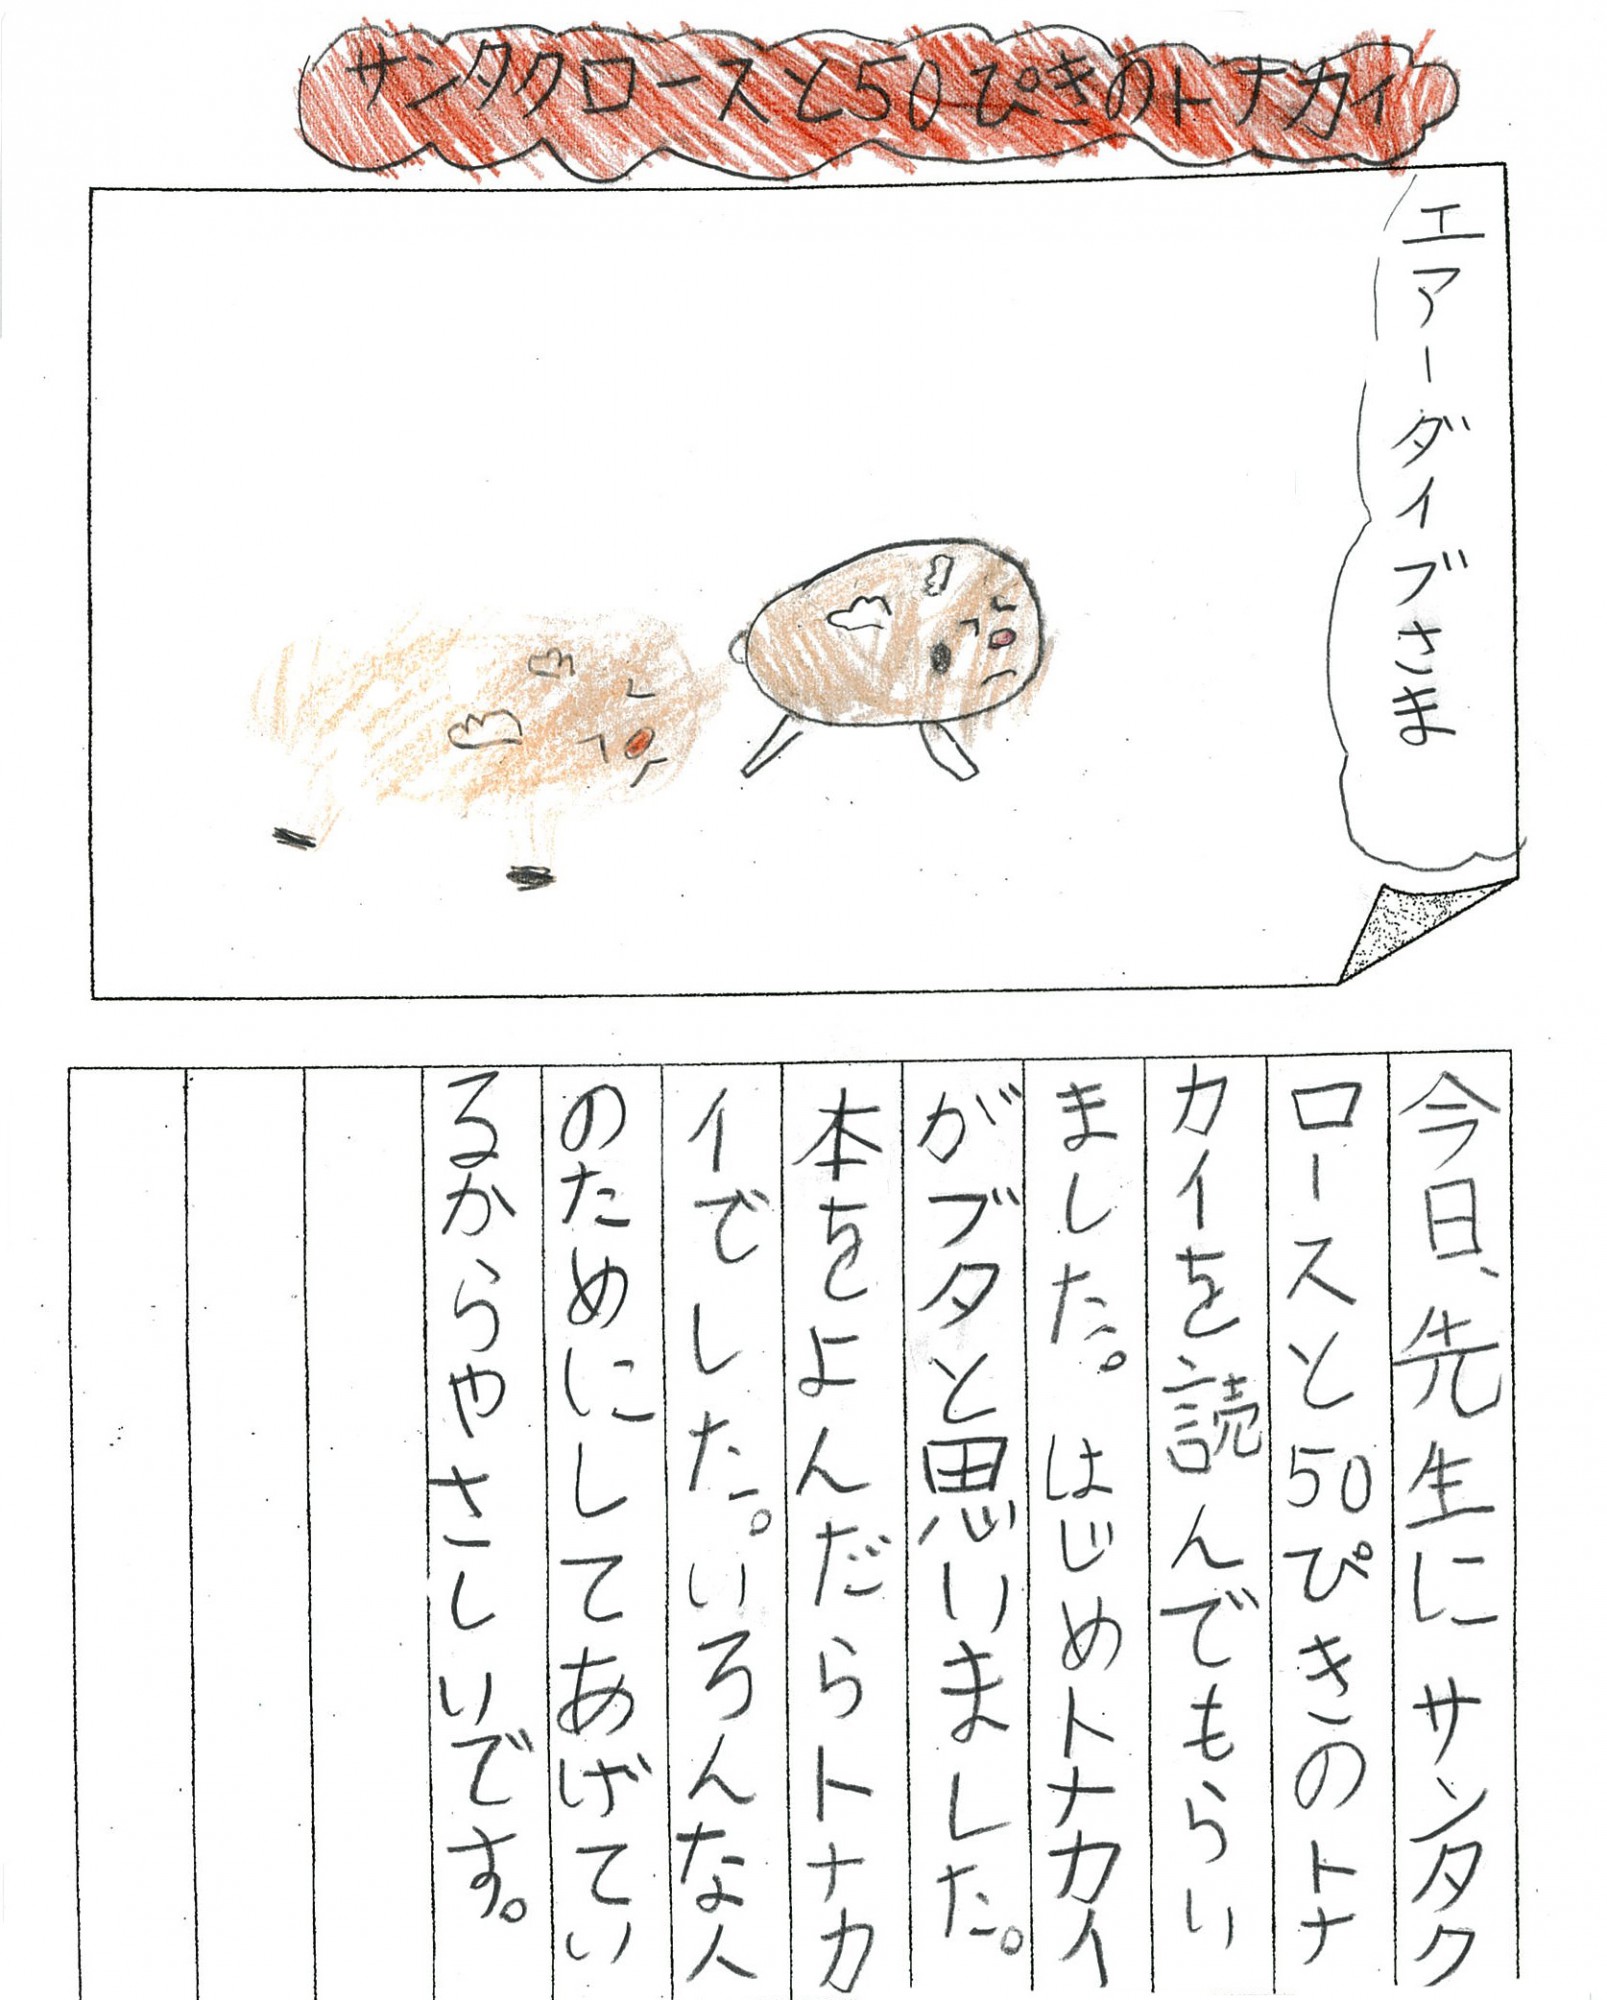 サンタクロースと50ぴきのトナカイ
エアーダイブさま
今日、先生にサンタク
ロースと50ぴきのトナ
カイを読んでもらい
ました。はじめトナカイ
がブタと思いました。
本をよんだらトナカ
イでした。いろんな人
のためにしてあげてい
るからやさしいです。